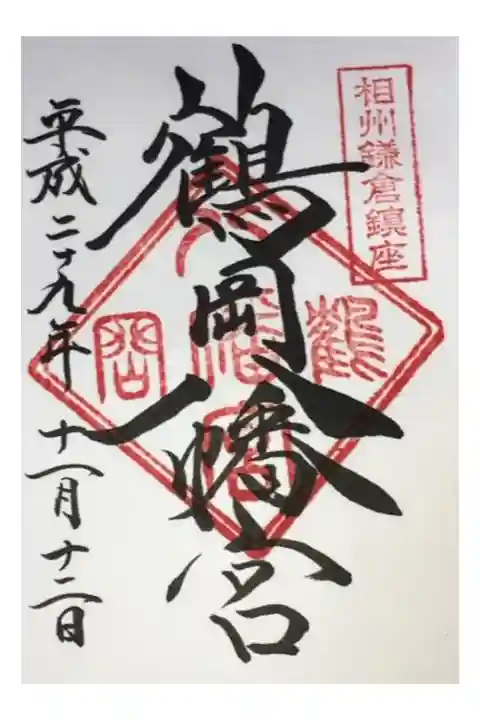 相州鎌倉鎮座
鶴岡八幡宮
平成二十九年 十一月十二日